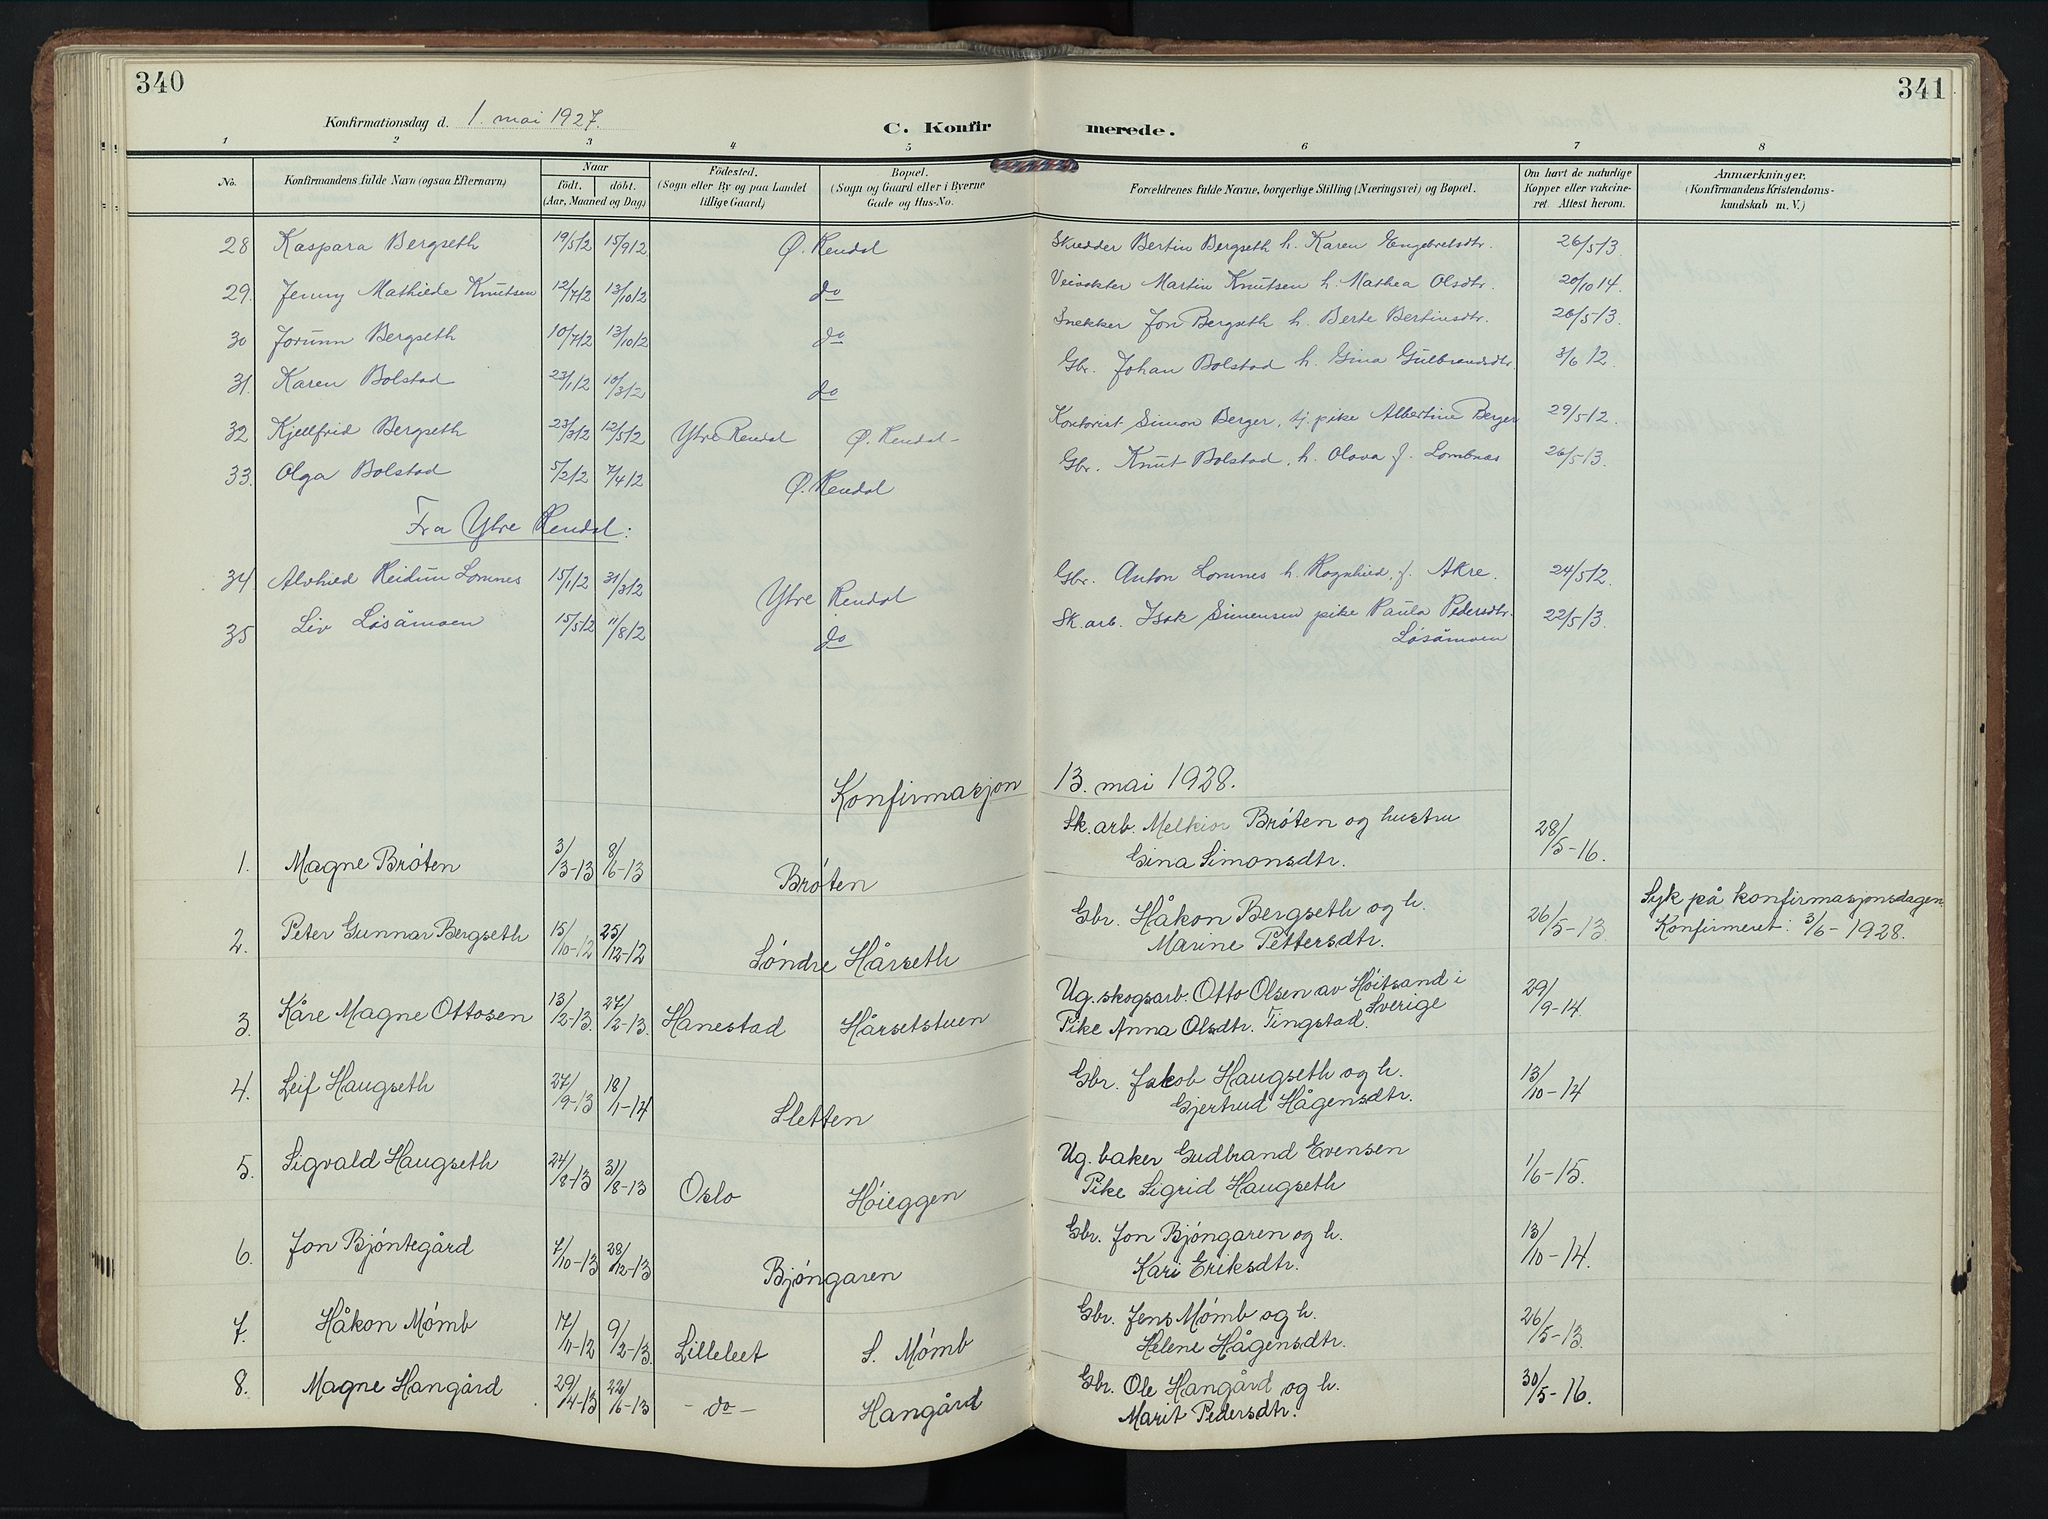 340
341
Konfirmationsdag d. 1. mai 1927.
C. Konfirmerede.
1 2 3 4 5 6 7 8
No.
Konfirmandens fulde Navn (ogsaa Efternavn)
Naar
født.
døbt.
(Aar, Maaned og Dag)
Fødested.
(Sogn eller By og paa Landet
tillige Gaard)
Bopæl.
(Sogn og Gaard eller i Byerne
Gade og Hus-No.
Forældrenes fulde Navne, borgerlige Stilling (Næringsvei) og Bopæl.
Om havt de naturlige
Kopper eller vakcine-
ret. Attest herom.
Anmærkninger.
(Konfirmandens Kristendoms-
kundskab m. V.)
28 Kaspara Bergseth 19/5 12 15/9 12 Ø. Rendal Skredder Bertin Bergseth h. Karen Engebretsdtr. 26/5 13.
29. Jenny Mathilde Knutsen 12/7 12 13/10 12 do Veivokter Martin Knutsen h. Mathea Olsdtr. 20/10 14.
30 Jorunn Bergseth 10/7 12 13/10 12 do Snekker Jon Bergseth h. Berte Bertinsdtr. 26/5 13.
31. Karen Bolstad 23/1 12 10/3 12 do Gbr. Johan Bolstad h. Gina Gulbrandsdtr. 3/6 12.
32 Kjellfrid Bergseth 23/3 12 12/5 12 Ytre Rendal Ø. Rendal Kontorist Simon Berger, tj. pike Albertine Berger 29/5 12.
33. Olga Bolstad 5/2 12 7/4 12 Ø. Rendal Gbr. Knut Bolstad, h. Olava f. Lombnæs 26/5 13.
Fra Ytre Rendal:
34 Alvhild Reidun Lomnes 15/1 12 31/3 12 Ytre Rendal Gbr. Anton Lomnes h. Ragnhild, f. Akre. 24/5 12.
35 Liv Løsåmoen 15/5 12 11/8 12 do Sk. arb. Isak Simensen pike Paula Pedersdtr. 22/5 13.
Løsåmoen
Konfirmasjon 13. mai 1928.
1. Magne Brøten 3/3-13 8/6-13 Brøten Sk. arb. Melkior Brøten og hustru 28/5-16.
Gina Simonsdtr.
2. Peter Gunnar Bergseth 15/10-12 25/12-12 Søndre Hårseth Gbr. Håkon Bergseth og h. 26/5-13. Syk på konfirmasjonsdagen.
Marine Pettersdtr. Konfirmeret: 3/6-1928.
3. Kåre Magne Ottosen 13/2-13. 27/2-13. Hanestad Hårsetstuen Ug. skogsarb. Otto Olsen av Høitsand i 29/9-14.
Sverige
Pike Anna Olsdtr. Tingstad.
4. Leif Haugseth 27/9-13 18/1-14 Sletten Gbr. Jakob Haugseth og h. 13/10-14
Gjertrud Hågensdtr.
5. Sigvald Haugseth 24/8-13 31/8-13 Oslo Høieggen Ug. baker Gudbrand Evensen 1/6-15.
Pike Sigrid Haugseth
6. Jon Bjøntegård 7/10-13 28/12-13 Bjøngaren Gbr. Jon Bjøngaren og h. 13/10-14.
Kari Eriksdtr.
7. Håkon Mømb 17/11-12 9/2-13. Lilleleet S. Mømb Gbr. Jens Mømb og h. 26/5-13.
Helene Hågensdtr.
8. Magne Hangård 29/4-13 22/6-13 - do - Hangård Gbr. Ole Hangård og h. 30/5-16.
Marit Pedersdtr.